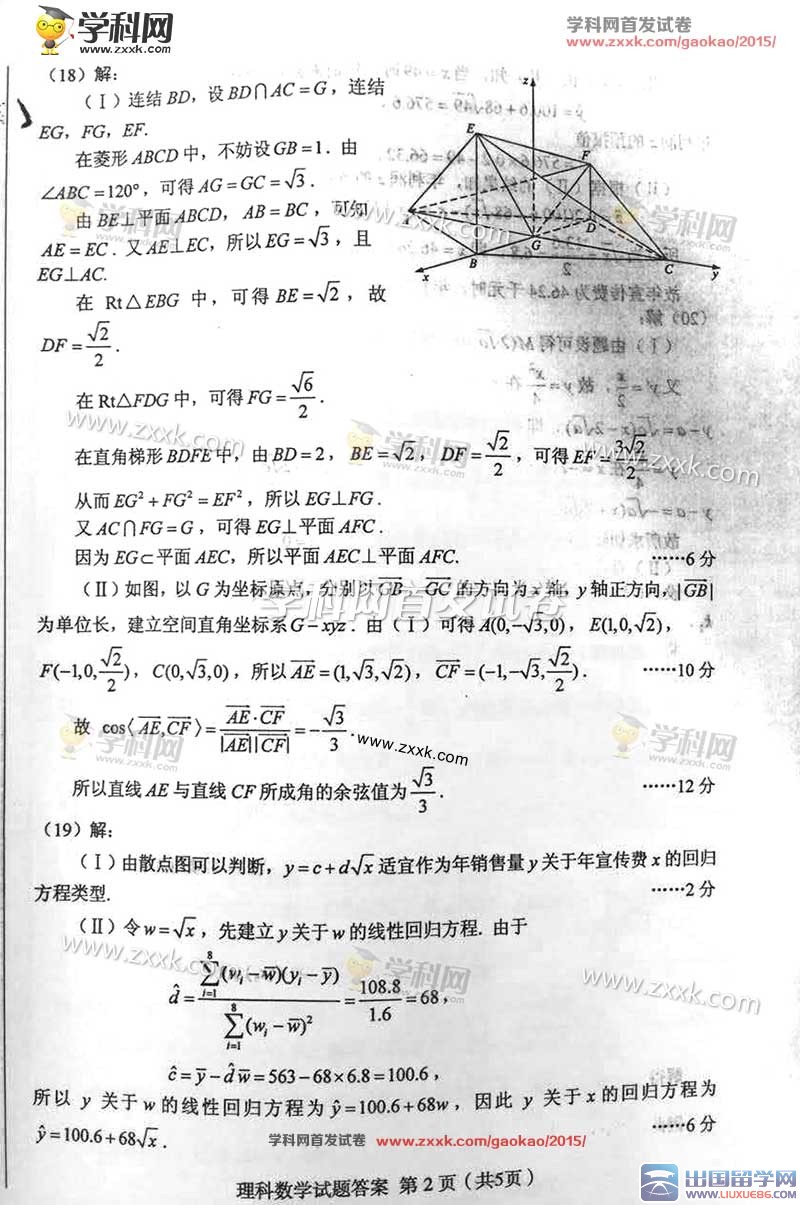 学科网
www.zxxk.com
学科网首发试卷
www.zxxk.com/gaokao/2015/
(18)解:
(Ⅰ)连结 BD,设 BD∩AC=G,连结
EG,FG,EF.
在菱形 ABCD 中,不妨设 GB=1.由
∠ABC=120°,可得 AG=GC=√3.
由 BE⊥平面 ABCD,AB=BC,可知
AE=EC.又 AE⊥EC,所以 EG=√3,且
EG⊥AC.
在 Rt△EBG 中,可得 BE=√2,故
DF=√2/2.
z
E
F
A
G
D
B
C
x
y
在 Rt△FDG 中,可得 FG=√6/2.
在直角梯形 BDFE 中,由 BD=2,BE=√2,DF=√2/2,可得 EF=3√2/2
从而 EG²+FG²=EF²,所以 EG⊥FG.
又 AC∩FG=G,可得 EG⊥平面 AFC.
因为 EG⊂平面 AEC,所以平面 AEC⊥平面 AFC. ……6 分
(Ⅱ)如图,以 G 为坐标原点,分别以 GB,GC 的方向为 x 轴,y 轴正方向,|GB|
为单位长,建立空间直角坐标系 G-xyz.由(Ⅰ)可得 A(0,-√3,0),E(1,0,√2),
F(-1,0,√2/2),C(0,√3,0),所以 AE=(1,√3,√2),CF=(-1,-√3,√2/2). ……10 分
故 cos⟨AE,CF⟩=AE·CF/|AE||CF|=-√3/3.
所以直线 AE 与直线 CF 所成角的余弦值为 √3/3. ……12 分
(19)解:
(Ⅰ)由散点图可以判断,y=c+d√x 适宜作为年销售量 y 关于年宣传费 x 的回归
方程类型. ……2 分
(Ⅱ)令 w=√x,先建立 y 关于 w 的线性回归方程. 由于
d̂=∑(i=1→8)(wᵢ-w̄)(yᵢ-ȳ)/∑(i=1→8)(wᵢ-w̄)²=108.8/1.6=68,
ĉ=ȳ-d̂w̄=563-68×6.8=100.6,
所以 y 关于 w 的线性回归方程为 ŷ=100.6+68w,因此 y 关于 x 的回归方程为
ŷ=100.6+68√x. ……6 分
学科网首发试卷 www.zxxk.com/gaokao/2015/
理科数学试题答案 第 2 页(共5页)
出国留学网
www.liuxue86.com